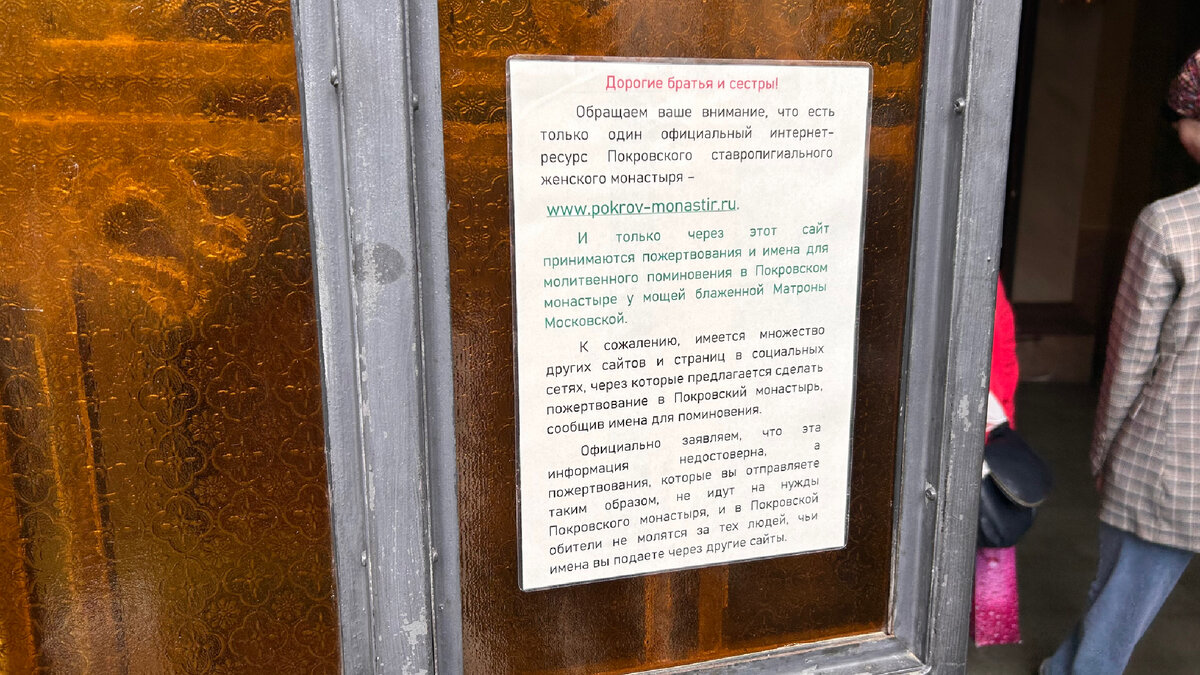 Дорогие братья и сестры!
Обращаем ваше внимание, что есть
только один официальный интернет-
ресурс Покровского ставропигиального
женского монастыря –
www.pokrov-monastir.ru.
И только через этот сайт
принимаются пожертвования и имена для
молитвенного поминовения в Покровском
монастыре у мощей блаженной Матроны
Московской.
К сожалению, имеется множество
других сайтов и страниц в социальных
сетях, через которые предлагается сделать
пожертвование в Покровский монастырь,
сообщив имена для поминовения.
Официально заявляем, что эта
информация недостоверна, а
пожертвования, которые вы отправляете
таким образом, не идут на нужды
Покровского монастыря, и в Покровской
обители не молятся за тех людей, чьи
имена вы подаете через другие сайты.